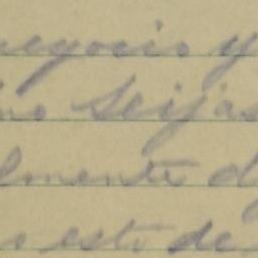 negocio y
Seijas
lmente d
s esto de